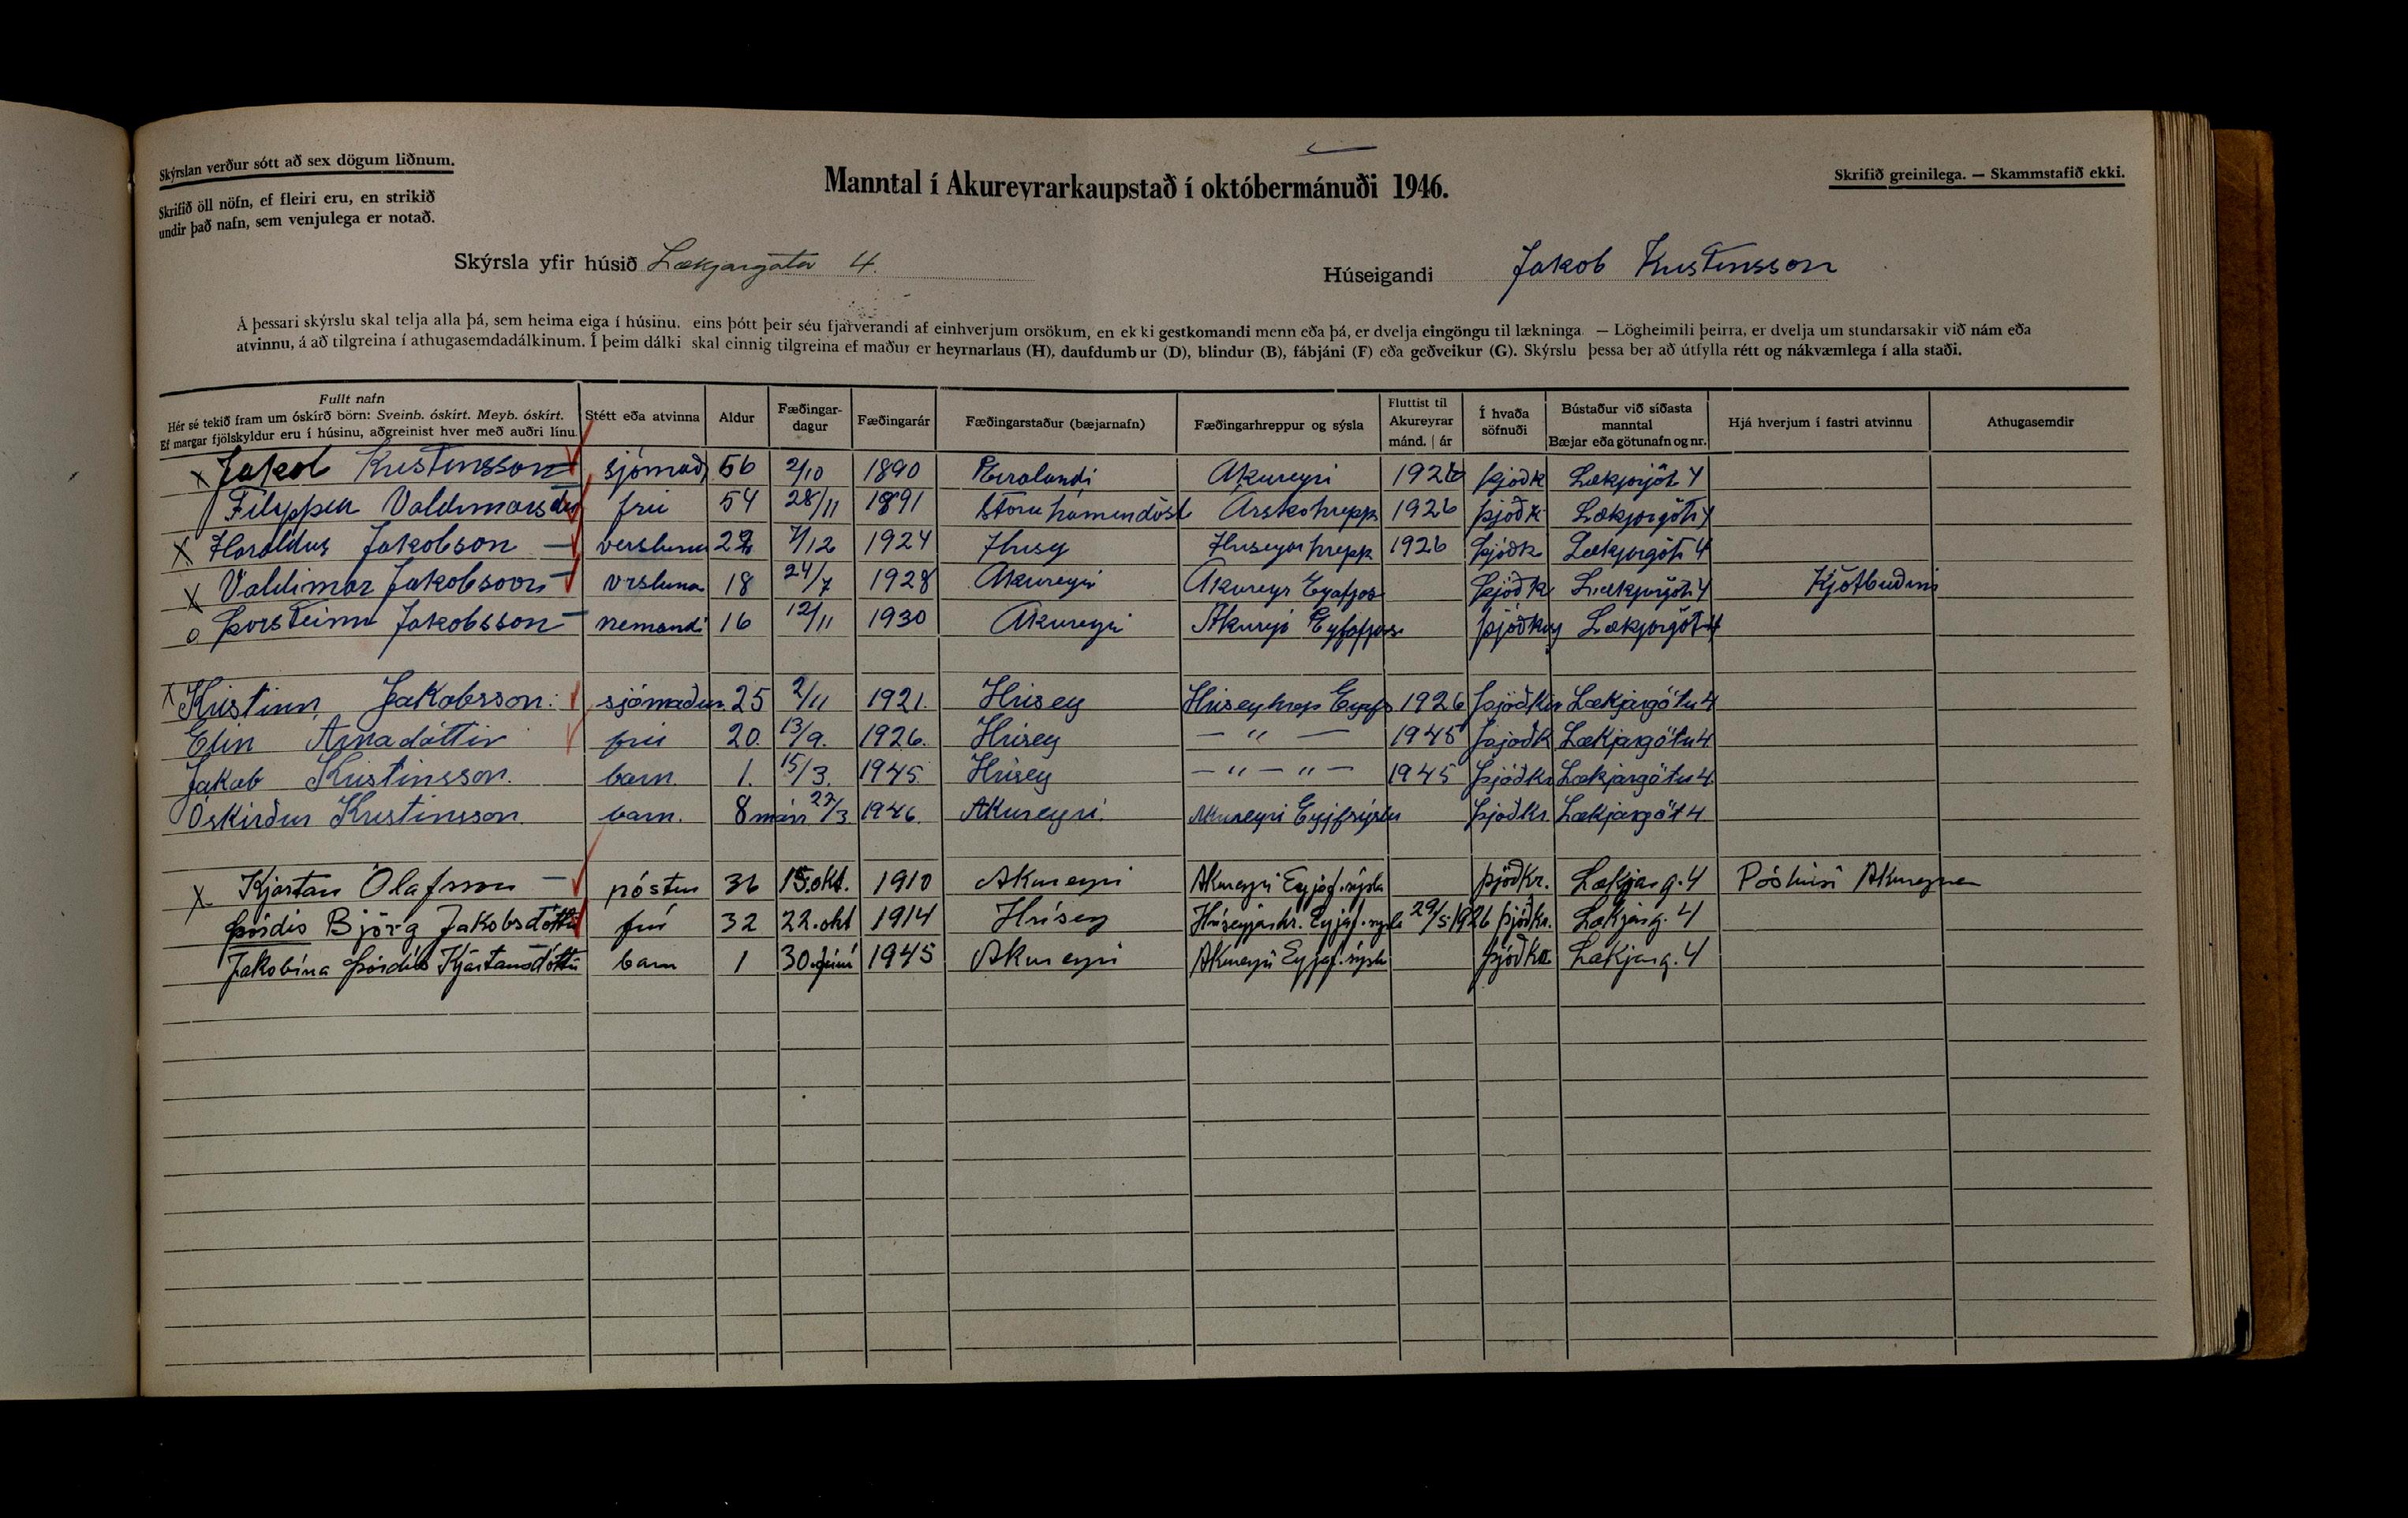 Skýrslan verður sótt að sex dögum liðnum.
Skrifið öll nöfn, ef fleiri eru, en strikið
undir það nafn, sem venjulega er notað.
Manntal í Akureyrarkaupstað í októbermánuði 1946.
Skrifið greinilega. — Skammstafið ekki.
Skýrsla yfir húsið Lækjargata 4.
Húseigandi Jakob Kristinsson
Á þessari skýrslu skal telja alla þá, sem heima eiga í húsinu. eins þótt þeir séu fjarverandi af einhverjum orsökum, en ekki gestkomandi menn eða þá, er dvelja eingöngu til lækninga. — Lögheimili þeirra, er dvelja um stundarsakir við nám eða
atvinnu, á að tilgreina í athugasemdadálkinum. Í þeim dálki skal einnig tilgreina ef maður er heyrnarlaus (H), daufdumbur (D), blindur (B), fábjáni (F) eða geðveikur (G). Skýrslu þessa ber að útfylla rétt og nákvæmlega í alla staði.
Fullt nafn
Hér sé tekið fram um óskírð börn: Sveinb. óskírt. Meyb. óskírt.
Ef margar fjölskyldur eru í húsinu, aðgreinist hver með auðri línu.
Stétt eða atvinna
Aldur
Fæðingar-
dagur
Fæðingarár
Fæðingarstaður (bæjarnafn)
Fæðingarhreppur og sýsla
Fluttist til
Akureyrar
mánd. | ár
Í hvaða
söfnuði
Bústaður við síðasta
manntal
Bæjar eða götunafn og nr.
Hjá hverjum í fastri atvinnu
Athugasemdir
x Jakob Kristinsson sjómað 56 2/10 1890 Akureyri 1926 þjóðk Lækjrgöt 4
Filippia Valdimarsdtr frú 54 28/11 1891 Árskohrepp 1926 þjóðk Lækjorgöti 4
x Haraldur Jakobson verslunu 22 7/12 1924 Hrisey Hriseyar hrepp 1926 þjóðk Lækjorgöti 4
x Valdimar Jakobsson vrsluna 18 24/7 1928 Akureyri Akureyr Eyafjos þjóðk Lækjorgöti 4 Kjötbuðini
o Þorsteinn Jakobsson nemandi 16 12/11 1930 Akureyri Akureyi Eyfafjors þjóðkr Lækjorgöt 4
x Kristinn Jakobsson. sjómaður. 25 2/11 1921. Hrísey Hriseyhrep Eyjafs 1926 Þjóðkir Lækjargötu 4
Elin Árnadóttir frú 20. 13/9. 1926. Hrísey — " — 1945 Þjóðk Lækjargötu 4
Jakob Kristinsson. barn. 1. 15/3. 1945. Hrísey — " — " — 1945 Þjóðkr Lækjargötu 4
Óskirður Kristinsson. barn. 8 mán 27/3 1946. Akureyri. Akureyri Eyjfsýslu Þjóðkr. Lækjargöt 4
x Kjartan Ólafsson póstur 36 15. okt. 1910 Akureyri Akureyri Eyjaf.sýsla þjóðkr. Lækjarg. 4 Pósthúsi Akureyrar
Þórdís Björg Jakobsdóttir frú 32 22. okt 1914 Hrísey Hríseyjarhr. Eyjaf.sýsla 29/5 1926 þjóðkr. Lækjarg. 4
Jakobína Þórdís Kjartansdóttir barn 1 30. júní 1945 Akureyri Akureyri Eyjaf.sýsla þjóðkr. Lækjarg. 4